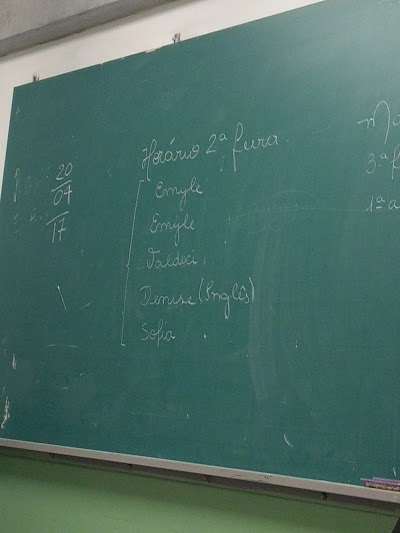 20
07
17
Horário 2ª feira
Emyle
Emyle
Valdeci
Denise (Inglês)
Sofia
3ª f
1ª a